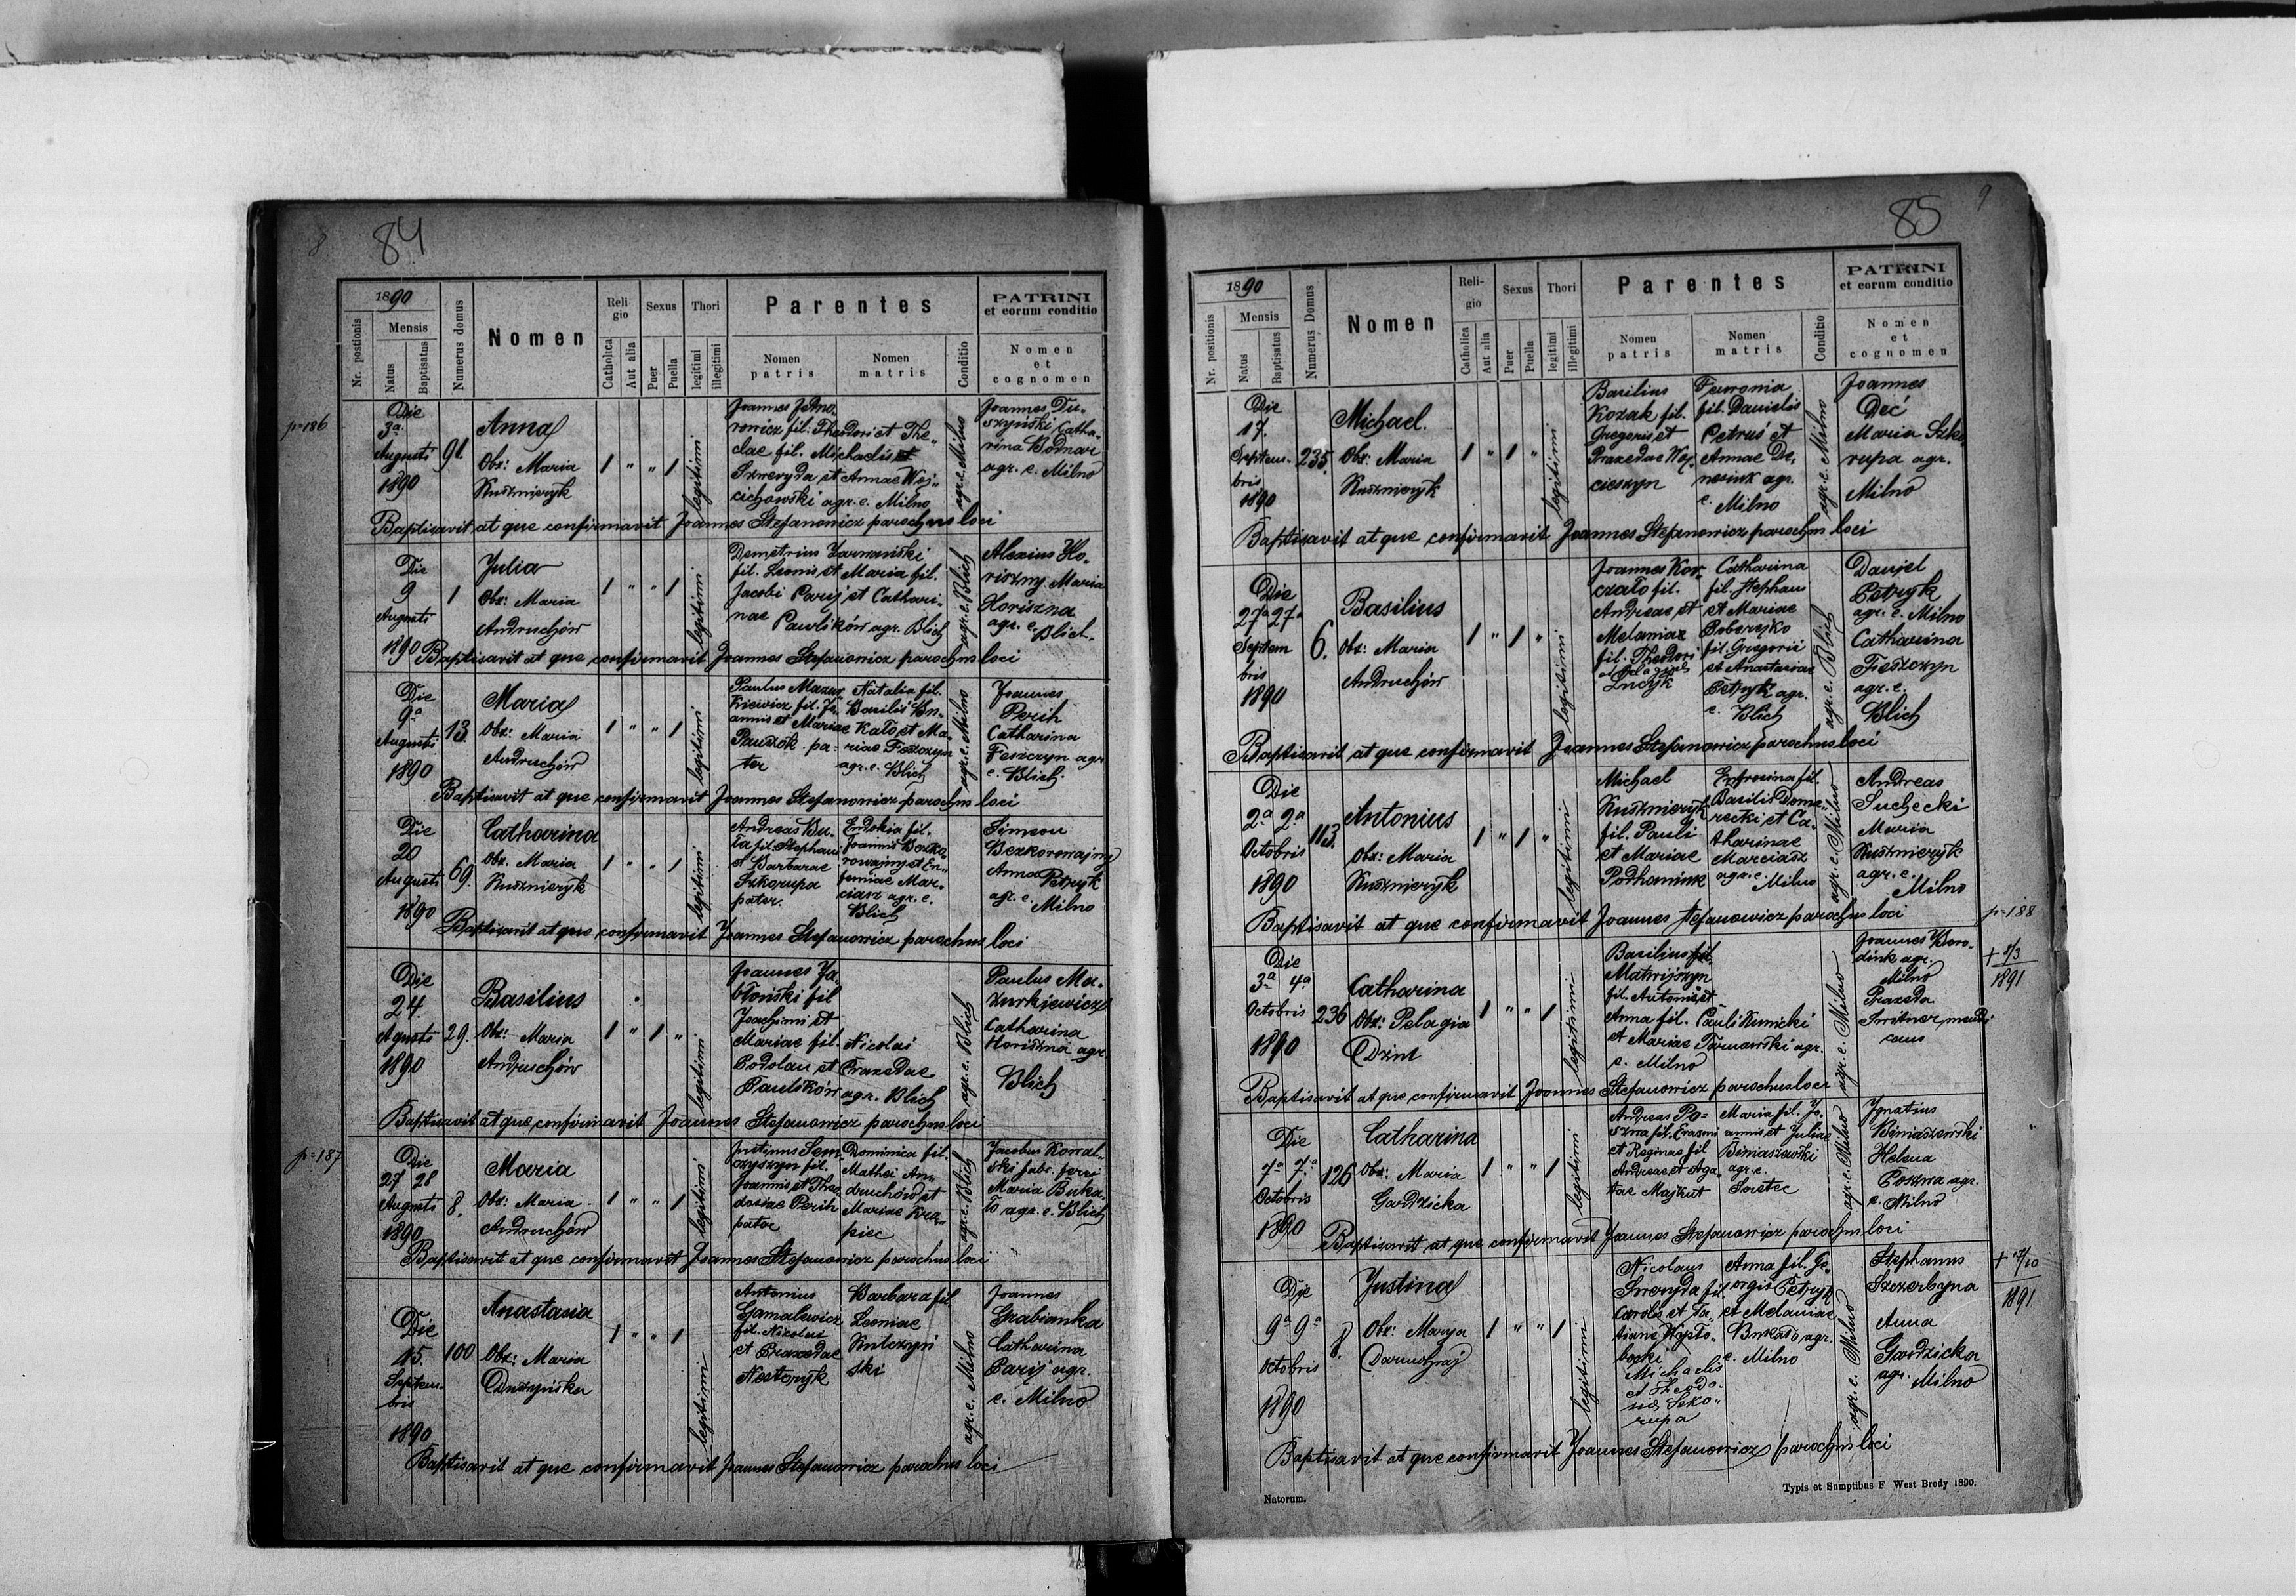 84
1890
Nr. postionis
Mensis
Natus
Baptisatus
Numerus domus
Nomen
Religio
Catholica
Aut alia
Sexus
Puer
Puella
Thori
legitimi
illegitimi
Parentes
Nomen patris
Nomen matris
Conditio
PATRINI
et eorum conditio
Nomen
et
cognomen
p-186
Die
3a
Augusti
1890
91.
Anna
Obx: Maria
Kuszmieryk
legitimi
rowicz fil: Theodori et The-
clae fil. Michaelis et
Szweryda et Annae Woj-
cichowski agr. c. Milno
agr. c. Milno
Joannes Du-
szyński Catha-
rina Bodnar
agr. c. Milno
Baptisavit at que confirmavit Joannes Stefanowicz parochus loci
Die
9
Augusti
1890
1
Julia
Obx: Maria
Andruchów
legitimi
Demetrius
fil. Leonis et Maria fil.
Jacobi Paryj et Cathari-
nae Pawlików agr. Blich
agr. c. Blich
Alexius Ho-
riszny Maria
Horiszna
agr. c.
Blich.
Baptisavit at que confirmavit Joannes Stefanowicz parochus loci
Die
9a
Augusti
1890
13.
Maria
Obx: Maria
Andruchów
legitimi
Paulus Mazur-
kiewicz fil. Jo-
annis et Mariae
pa-
ter
Natalia fil.
Basilii Bu-
kało et Ma-
riae Feszczyn
agr. c. Blich
agr. c. Milno
Joannes
Perih
Catharina
Feszczyn agr
c. Blich.
Baptisavit at que confirmavit Joannes Stefanowicz parochus loci
Die
20
Augusti
1890
69.
Catharina
Obx. Maria
Kuszmieryk
legitimi
Andreas Bu-
ta fil. Stephani
et Barbarae
Szkorupa
pater.
Eudokia fil.
Joannis Bezko-
rowajny et Eu-
femiae Mar-
ciasz agr. c.
Blich
Simeon
Bezkorowajny
Anna Petryk
agr. c. Milno
Baptisavit at que confirmavit Joannes Stefanowicz parochus loci
Die
24.
Agusti
1890
29.
Basilius
Obx: Maria
Andruchów
legitimi
Joannes Ja-
błoński fil
Joachimi et
Mariae fil. Nicolai
Podolan et Praxedae
Pawlików agr. Blich
agr. c. Blich
Paulus Ma-
zurkiewicz
Catharina
Horiszna agr.
Blich
Baptisavit at que confirmavit Joannes Stefanowicz parochus loci
p-187
Die
27 28
Augusti
1890
8.
Maria
Obx: Maria
Andruchów
legitimi
Justinus Sem-
czyszyn fil.
Joannis et Theo-
dosiae Perih
pater
Dominica fil.
Mathei An-
druchów et
Mariae Kra-
piec
agr. c. Blich
Jacobus Kowal-
ski fabr. ferri
Maria Buka-
ło agr. c. Blich
Baptisavit at que confirmavit Joannes Stefanowicz parochus loci
Die
15.
Septem-
bris
1890
100
Anastasia
Obx: Maria
Duszyńska
legitimi
Antonius
Gamalewicz
fil. Nicolai
et Praxedae
Nestoryk
Barbara fil
Leoniae
Kulczyń
ski
agr. c. Milno
Joannes
Grabianka
Catharina
Paryj agr.
c. Milno
Baptisavit at que confirmavit Joannes Stefanowicz parochus loci
85
9
1890
Nr. positionis
Mensis
Natus
Baptisatus
Numerus Domus
Nomen
Religio
Catholica
Aut alia
Sexus
Puer
Puella
Thori
legitimi
illegitimi
Parentes
Nomen patris
Nomen matris
Conditio
PATRINI
et eorum conditio
Nomen
et
cognomen
Die
17.
Septem-
bris
1890
235.
Michael.
Obx: Maria
Kuszmieryk
legitimi
Basilius
Kozak fil.
Gregorii et
Praxedae Woj-
cieszyn
Fewronia
fil. Danielis
Petruś et
Annae De-
agr.
c. Milno
agr. c. Milno
Joannes
Deć
Maria Szko
rupa agr.
Milno
Baptisavit at que confirmavit Joannes Stefanowicz parochus loci
Die
27a 27a
Septem
bris
1890
6.
Basilius
Obx: Maria
Andruchów
legitimi
Joannes Kor-
czało fil.
Andreae et
Melaniae
fil. Theodori
et Pelagiae
Łuczyk
Catharina
fil. Stephani
et Mariae
fil. Gregorii
et Anastasiae
Petryk agr.
c. Blich
agr. c. Blich
Daniel
Petryk
agr. c. Milno
Catharina
Feszczyn
agr. c.
Blich
Baptisavit at que confirmavit Joannes Stefanowicz parochus loci
Die
2a 2a
Octobris
1890
113.
Antonius
Obx: Maria
Kuszmieryk
legitimi
Michael
Kuszmieryk
fil. Pauli
et Mariae
Podhaniuk
Eufrosina fil.
Basilii Dome-
recki et Ca-
tharinae
Marciasz
agr. c. Milno
agr. c. Milno
Andreas
Suchecki
Maria
Kuszmieryk
agr. c.
Milno
Baptisavit at que confirmavit Joannes Stefanowicz parochus loci
p-188
Die
3a 4a
Octobris
1890
236
Catharina
Obx: Pelagia
legitimi
Basilius fil.
Matwijszyn
fil. Antonii et
Anna fil. Pauli Kunicki
et Mariae Tarnawski agr.
c. Milno
agr. c. Milno
Joannes Boro-
diuk agr.
Milno
Praxeda
+ 8/3
1891
Baptisavit at que confirmavit Joannes Stefanowicz parochus loci
Die
7a 7a
Octobris
1890
126
Catharina
Obx: Maria
Gwodzicka
legitimi
Andreas Po-
szwa fil. Erazmi
et Reginae fil
Andreae et Aga-
tae Majkut
Maria fil. Jo-
annis et Juliae
Biniaszewski
agr. c.
agr. c. Milno
Ignatius
Biniaszewski
Helena
Poszwa agr.
c. Milno
Baptisavit at que confirmavit Joannes Stefanowicz parochus loci
Die
9a 9a
Octobris
1890
8.
Justina
Obx: Marya
legitimi
Nicolaus
Szweryda fil
Caroli et Ta-
tiane Wysło-
bocki
Michaelis
et Theodo-
Szko-
rupa
Anna fil. Ge-
orgii Petryk
et Melaniae
Bukało agr.
c. Milno
agr. c. Milno
Stephanus
Szczerbyna
Anna
Gwodzicka
agr. Milno
+ 7/10
1891
Baptisavit at que confirmavit Joannes Stefanowicz parochus loci
Natorum.
Typis et Sumptibus F West Brody 1890.